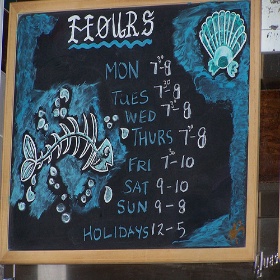 HOURS
MON 7³⁰-8
TUES 7³⁰-8
WED 7³⁰-8
THURS 7³⁰-8
FRI 7³⁰-10
SAT 9-10
SUN 9-8
HOLIDAYS 12-5